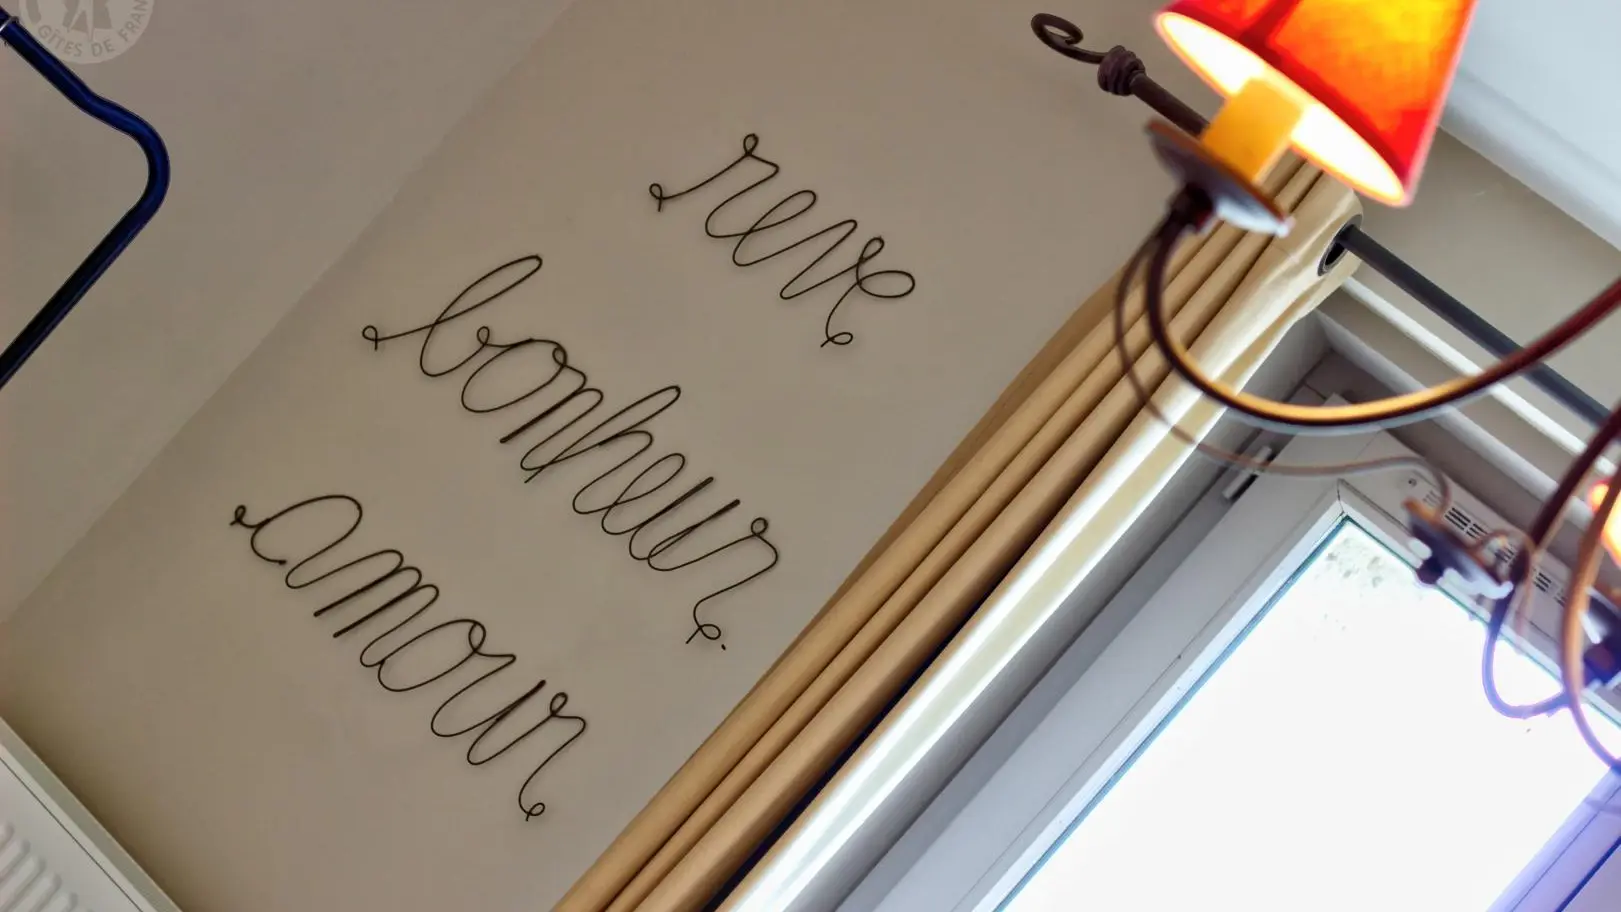 GÎTES DE FRAN
reve
bonheur
amour